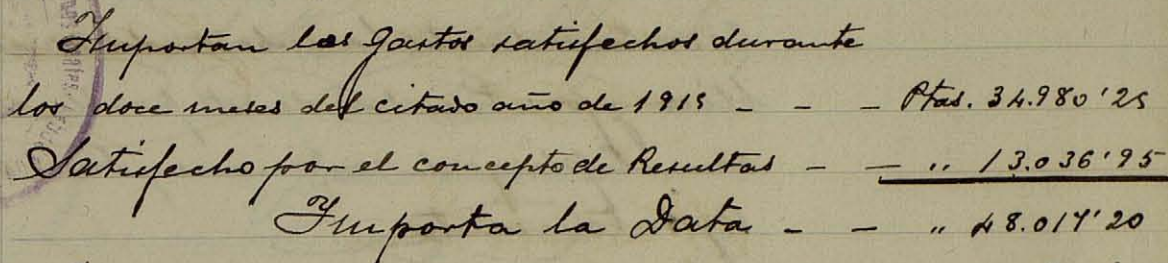 Importan los gastos satisfechos durante
los doce meses del citado año de 1915 - - - Ptas. 34.980'25
Satisfecho por el concepto de Resultas - - " 13.036'95
Importa la Data - - " 48.017'20